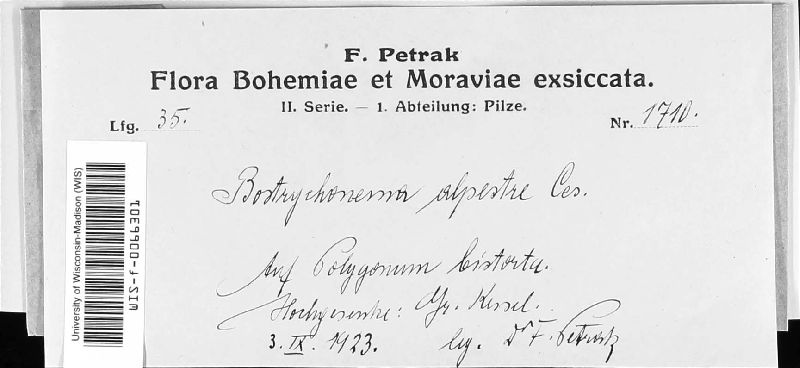 F. Petrak
Flora Bohemiae et Moraviae exsiccata.
II. Serie. — 1. Abteilung: Pilze.
Lfg. 35. Nr. 1710.
Bostrychonema alpestre Ces.
Auf Polygonum bistorta.
Hochgesenke: Gr. Kessel.
3. IX. 1923. leg. Dr F. Petrak
University of Wisconsin-Madison (WIS)
WIS-f-0099301